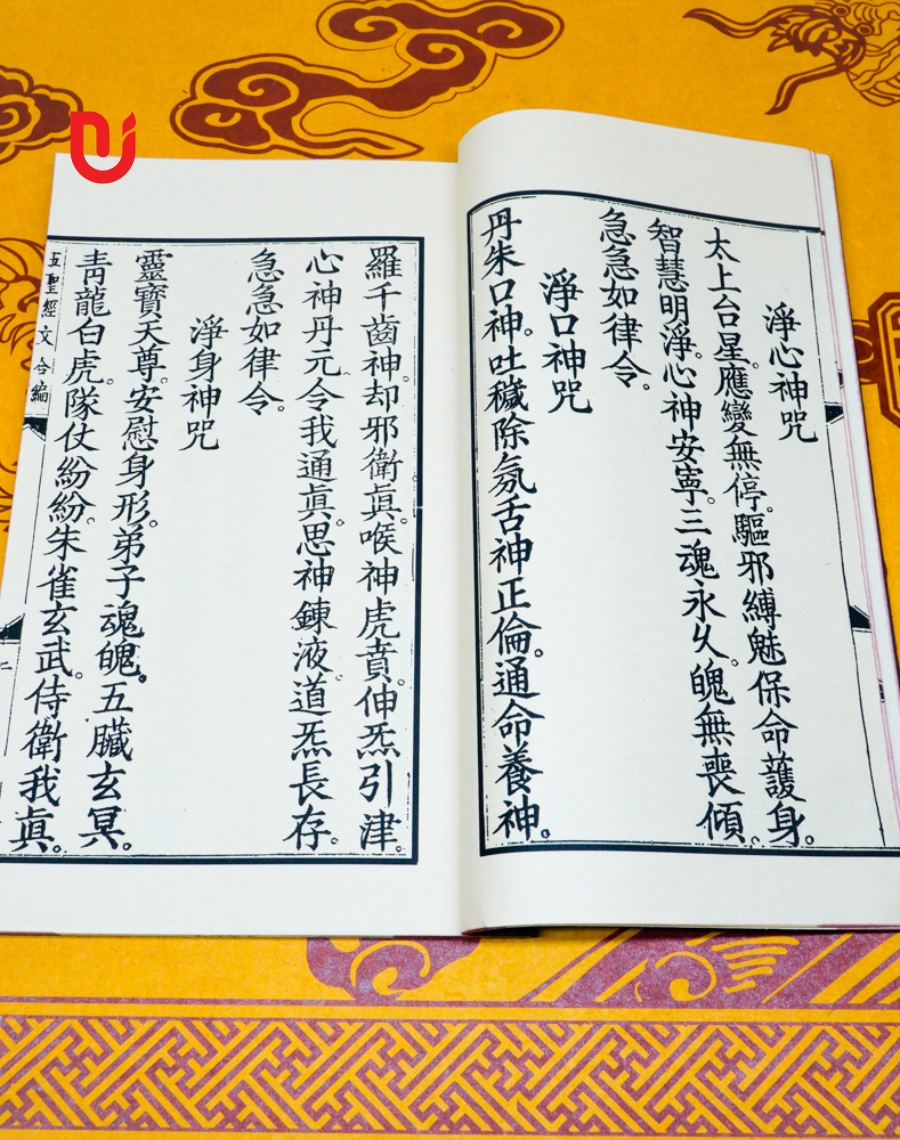 淨心神咒
太上台星。應變無停。驅邪縛魅保命護身。
智慧明淨。心神安寧。三魂永久。魄無喪傾。
急急如律令。
淨口神咒
丹朱口神。吐穢除氛舌神正倫。通命養神。
羅千齒神。却邪衛眞。喉神虎賁。伸炁引津。
心神丹元。令我通眞。思神鍊液。道炁長存。
急急如律令。
淨身神咒
靈寶天尊。安慰身形。弟子魂魄。五臟玄冥。
靑龍白虎。隊仗紛紛。朱雀玄武。侍衛我眞。
五聖經文合編
二